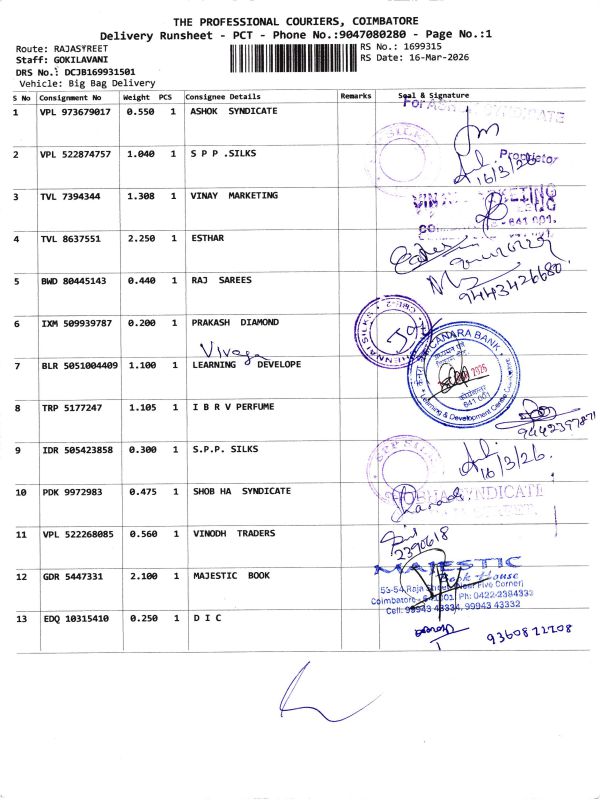 THE PROFESSIONAL COURIERS, COIMBATORE
Delivery Runsheet - PCT - Phone No.:9047080280 - Page No.:1
Route: RAJASYREET
RS No.: 1699315
Staff: GOKILAVANI
RS Date: 16-Mar-2026
DRS No.: DCJB169931501
Vehicle: Big Bag Delivery
S No Consignment No Weight PCS Consignee Details Remarks Seal & Signature
1 VPL 973679017 0.550 1 ASHOK SYNDICATE
For SYNDICATE
Proprietor
2 VPL 522874757 1.040 1 S P P .SILKS
16/3/26
3 TVL 7394344 1.308 1 VINAY MARKETING
- 641 001.
4 TVL 8637551 2.250 1 ESTHAR
5 BWD 80445143 0.440 1 RAJ SAREES
9443426680.
6 IXM 509939787 0.200 1 PRAKASH DIAMOND
Vivega
CANARA BANK
2026
641 001
Learning & Development Centre
7 BLR 5051004409 1.100 1 LEARNING DEVELOPE
8 TRP 5177247 1.105 1 I B R V PERFUME
9442397871
9 IDR 505423858 0.300 1 S.P.P. SILKS
S.P.P. SILKS
16/3/26.
10 PDK 9972983 0.475 1 SHOB HA SYNDICATE
SHOBHA SYNDICATE
STREET
11 VPL 522268085 0.560 1 VINODH TRADERS
2390618
12 GDR 5447331 2.100 1 MAJESTIC BOOK
MAJESTIC
Book House
53-54, Raja Street (Near Five Corner)
Coimbatore - 641001 Ph: 0422-2384332
Cell: 99943 43334, 99943 43332
13 EDQ 10315410 0.250 1 D I C
9360822208